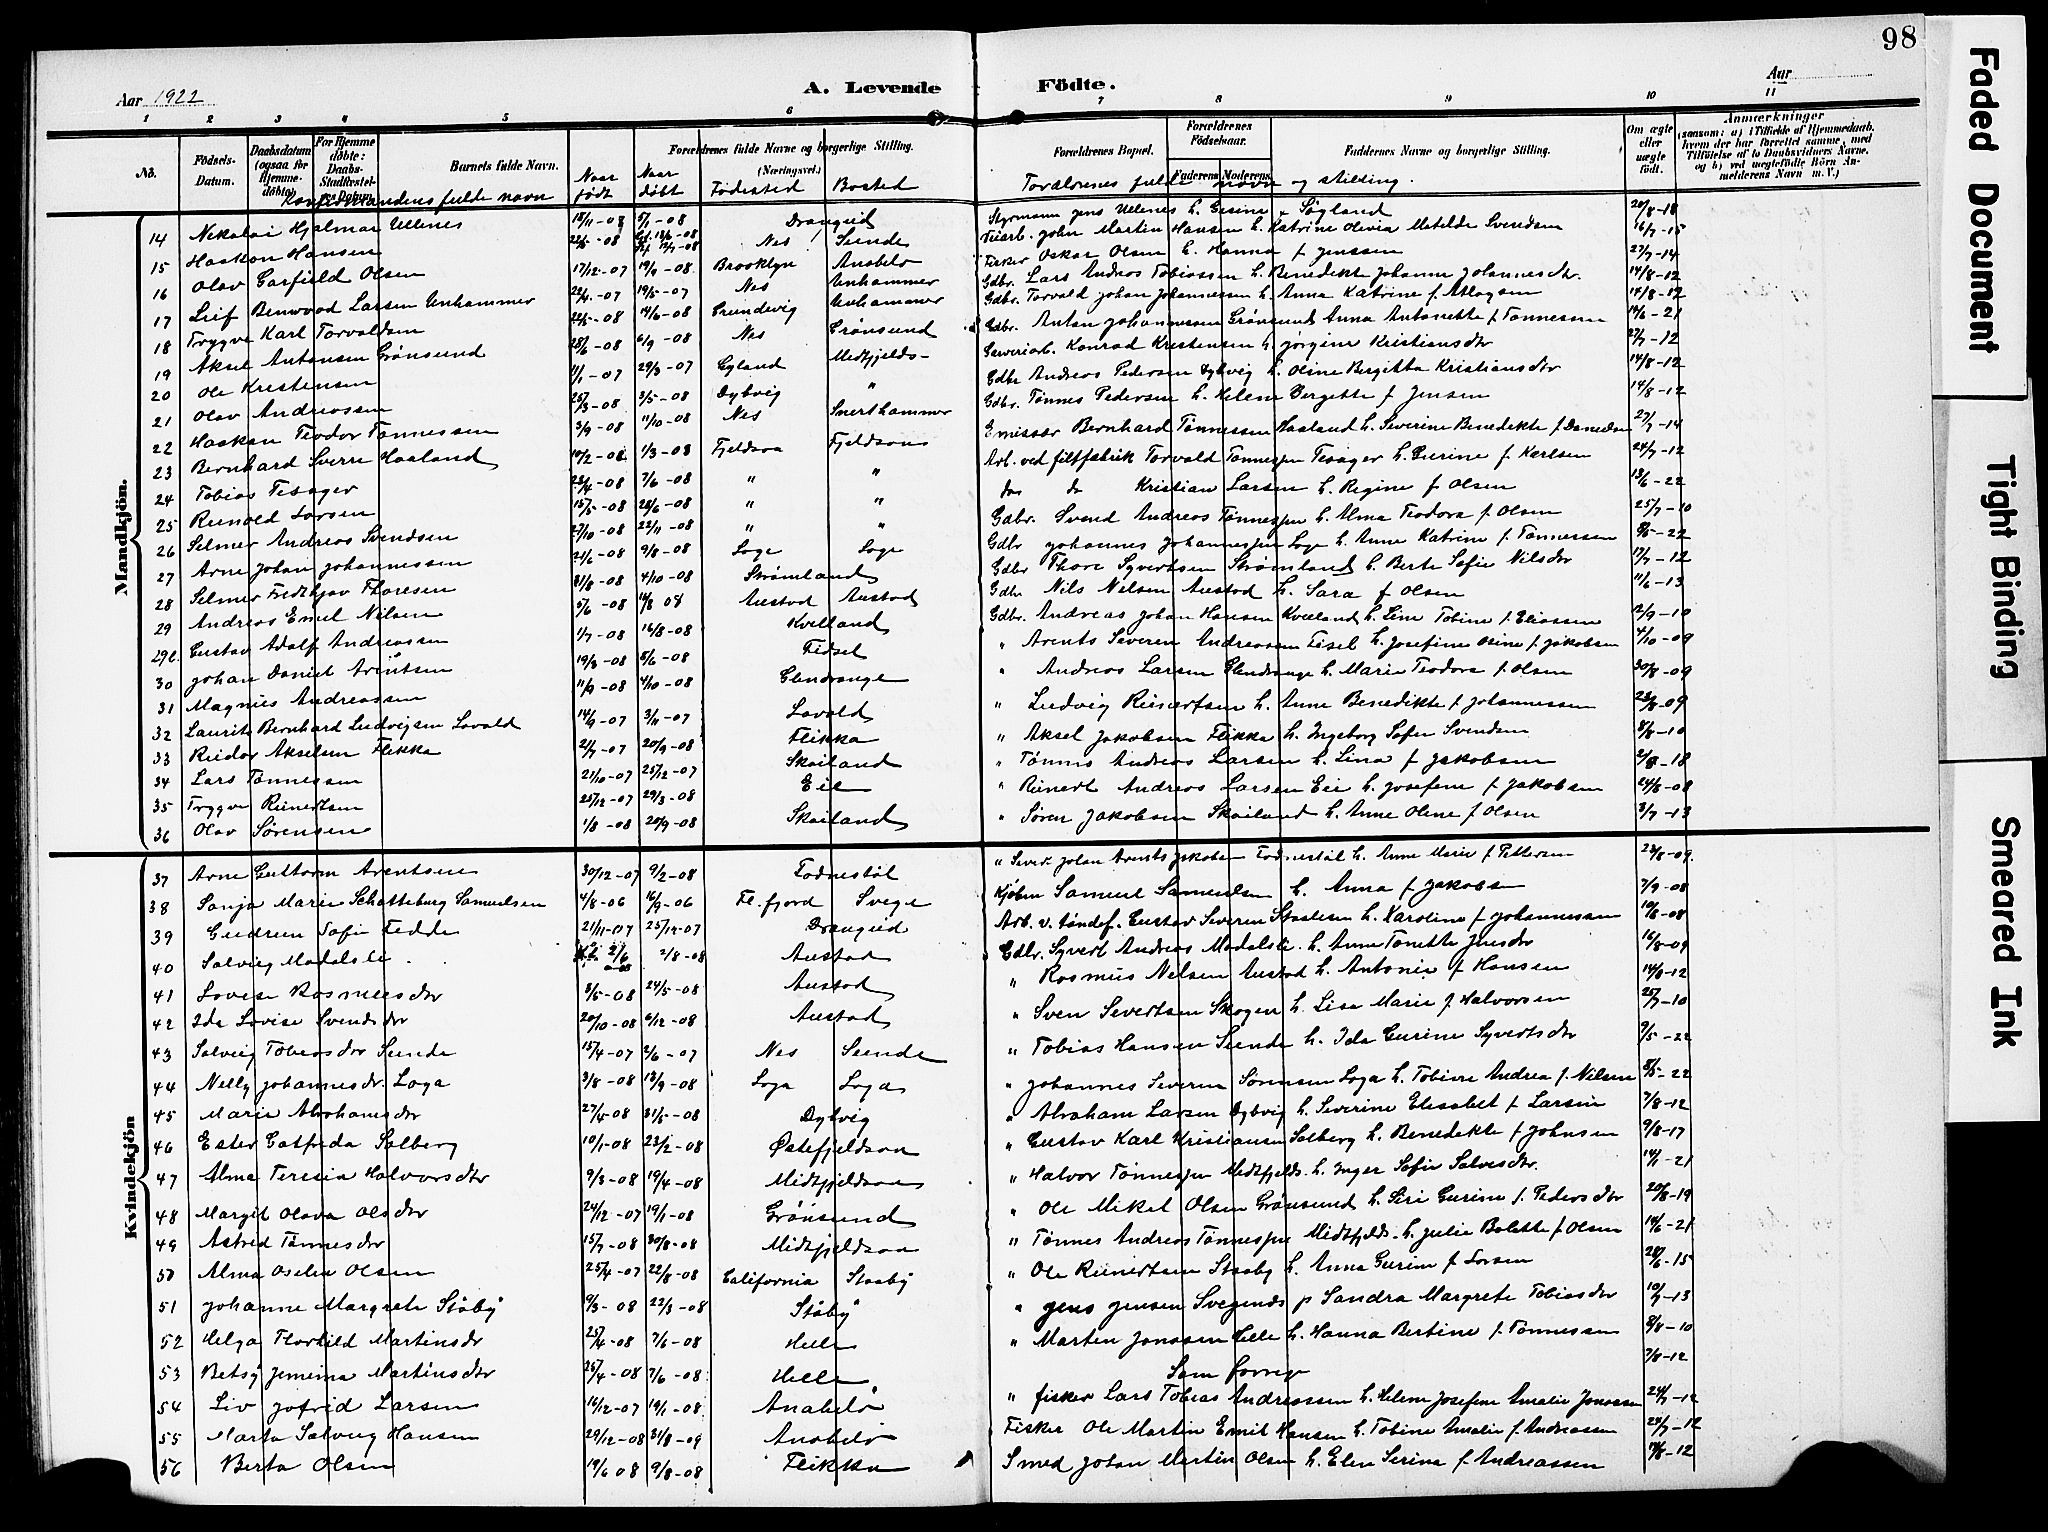 98
Aar 1922
A. Levende
Fødte.
Aar
1 2 3 4 5 6 7 8 9 10 11
No.
Fødsels-Datum.
Daabsdatum (ogsaa for Hjemmedøbte)
For Hjemmedøbte: Daabs-Stadfæstelses-Datum.
Barnets fulde Navn.
Konfirmandens fulde navn
Naar født
Naar døbt
Forældrenes fulde Navne og borgerlige Stilling.
(Næringsvei.)
Fødested
Bosted
Forældrenes Bopæl.
Forældrenes Fødselsaar.
Faderens Moderens
Faddernes Navne og borgerlige Stilling.
Forældrenes fulde navn og stilling.
Om ægte eller uægte født.
Anmærkninger
(saasom: a) i Tilfælde af Hjemmedaab, hvem der har forrettet samme, med Tilføielse af to Daabsvidners Navne, og b) ved uægtefødte Børn Anmelderens Navn m. V.)
Mandkjön.
14 Nikolai Hjalmar Ullenes 18/11-08 5/1-08 Drangeid Styrmann Jens Ullenes h. Gesine Søyland 20/8-18
15 Haakon Hansen 22/5-08 Nes Sunde Feiarb. John Martin Hansen h. Katrine Olivia Metilde Svendsen 16/7-15
16 Olav Garfield Olsen 17/12-07 19/9-08 Brooklyn Anabelø Fisker Oskar Olsen h. Hanna f Jenssen 27/7-14
17 Leif Benwood Larsen Unhammer 22/4-07 19/5-07 Nes Unhammer Gdbr. Lars Andreas Tobiassen h. Benedikte Johanne Johannesdtr. 14/8-12
18 Trygve Karl Torvaldsen 22/5-08 14/6-08 Unhammer Gdbr. Torvald Johan Johannessen h. Anna Katrine f. Atlagsen 14/8-12
19 Aksel Antonsen Grønsund 28/6-08 6/9-08 Nes Grønsund Gdbr. Anton Johannessen Grønsund Anna Antonette f Tønnessen 14/6-21
20 Ole Kristensen 1/1-07 29/3-07 Gyland Midtfjelds- Konrad Kristensen h. Jørgine Kristiansdtr 27/7-12
21 Olav Andreassen 25/3-08 3/5-08 Dybvig " Gdbr Andreas Pedersen Dybvig h. Oline Bergitta Kristiansdtr 14/8-12
22 Haakon Teodor Tønnessen 3/9-08 11/10-08 Nes Gdbr. Tønnes Pedersen h. Helene Bergette f Jensen 14/8-12
23 Bernhard Sverre Haaland 10/2-08 1/3-08 Fjeldsaa Fjeldsaa Emissær Bernhard Tønnessen Haaland h. Severine Benedikte f Danielsen 27/7-14
24 Tobias Tesager 7/6-08 " " Arb. ved filtfabrik Torvald Tønnessen Tesager h. Gurine f Karlsen 24/7-12
25 Reinold Larsen 15/5-08 28/6-08 " " do do Kristian Larsen h. Regine f Olsen 13/6-22
26 Selmer Andreas Svendsen 27/10-08 22/11-08 " " Gdbr. Svend Andreas Tønnessen h. Alma Teodora f. Olsen 25/7-10
27 Arne Johan Johannessen 21/6-08 9/8-08 Loge Loge Gdbr Johannes Johannessen Loge h. Anne Katrine f. Tønnessen 8/5-22
28 Selmer Fridtjov Thoresen 31/8-08 4/10-08 Strømland Gdbr Thore Syvertsen Strømland h. Berte Sofie Nilsdtr 17/7-12
29 Andreas Emil Nilsen 5/6-08 14/8 08 Austad Austad Gdbr Nils Nelsen Austad h. Sara f Olsen 11/6-13
29b. Gustav Adolf Andreassen 1/7-08 16/8-08 Kvelland Gdbr. Andreas Johan Hansen Kvelland h. Line Tobine f. Eliassen 12/9-10
30 Johan Daniel Arentsen 19/3-08 5/6-08 Fidsel " Arents Severen Andreassen Fisel h. Josefine Osine f. Jakobsen 4/10-09
31 Magnus Andreassen 11/9-08 4/10-08 Glendrange " Andreas Larsen Glendrange h. Marie Teodora f. Olsen 30/8-09
32 Laurits Bernhard Ludvigsen Lovald 14/9-07 3/11-07 Lovald " Ludvig Reinertsen h. Anne Benedikte f Johannessen 23/8-09
33 Reidar Akselsen Flikka 2/7-07 20/9-08 Flikka " Aksel Jakobsen Flikka h. Ingeborg Sofie Svendsen 8/8-10
34 Lars Tønnessen 21/10-07 25/12-07 Skailand " Tønnes Andreas Larsen h. Lina f Jakobsen 2/8-18
35 Trygve Reinertsen 25/12-07 29/3-08 Eie " Reinert Andreas Larsen Eie h. Josefine f Jakobsen 24/8-08
36 Olav Sørensen 1/8-08 20/9-08 Skailand " Søren Jakobsen Skailand h. Anne Olene f Olsen 3/7-13
Kvindekjön
37 Arne Guttorm Arentsen 30/12-07 9/2-08 Fodnestøl " Sever. Johan Arents Jakobsen Fodnestøl h. Anne Marie f Pettersen 23/8-09
38 Sanja Marie Schatteburg Samuelsen 4/8-06 16/9-06 Fl.fjord Svege Kjøbm Samuel Samuelsen h. Anna f Jakobsen 7/9-08
39 Gudrun Sofie Fedde 21/11-07 25/12-07 Drangeid Arb. v. tøndef. Gustav Severin Staalesen h. Karoline f Johannessen 10/8-08
40 Solveig Modalsli 2/8-08 Austad Gdbr. Syvert Andreas Modalsli h. Anne Tonette Jensdtr 16/8-09
41 Lovise Rosmusdtr 3/5-08 24/5-08 Austad " Rasmus Nelsen Austad h. Antonie f Hansen 14/8-12
42 Ida Lovise Svendsdtr 20/10-08 6/12-08 Austad " Sven Severtsen Skogen h. Lisa Marie f Halvorsen 25/7-10
43 Solveig Tobiasdtr Sunde 15/4-07 2/6-07 Nes Sunde " Tobias Hansen Sunde h. Ida Gurine Syvertsdtr 9/5-22
44 Nelly Johannesdr. Loga 3/8-08 13/9-08 Loga Loga " Johannes Severin Sørensen Loga h. Tobine Andrea f. Nilsen 8/5-22
45 Marie Abrahamsdtr 27/4-08 31/5-08 Dybvig " Abraham Larsen Dybvig h. Severine Elisabet f Larsen 7/8-12
46 Ester Gotfreda Solberg 10/1-08 23/2-08 Østefjeldsaa " Gustav Karl Kristiansen Solberg h. Benedikte f Johnsen 9/8-17
47 Alma Teresia Halvorsdtr 9/3-08 19/4-08 Midtfjeldsaa " Halvor Tønnessen Midtfjelds. h. Inger Sofie Salvesdtr. 14/1-21
48 Margit Olava Olsdtr 24/12-07 19/1-08 Grønsund " Ole Mikal Olsen Grønsund h. Siri Gurine f. Pedersdtr 20/8-19
49 Astrid Tønnesdtr 15/7-08 30/8-08 Midtfjeldsaa " Tønnes Andreas Tønnessen Midtfjelds. h. Julie Bolette f Olsen 14/6-21
50 Alma Oselia Olsen 25/4-07 22/8-08 California Staaby " Ole Reinertsen Staaby h. Anna Gurine f Larsen 28/6-15
51 Johanne Margrete Ståby 9/3-08 22/3-08 Ståby " Jens Jensen Svegends p Sandra Margrete Tobiasdtr 10/7-13
52 Helga Thorhild Martinsdr 25/4-08 7/6-08 Helle " Marten Jonassen Helle h. Hanna Bertine f. Tønnessen 8/8-10
53 Betsy Jemima Martinsdtr 25/4-08 7/6-08 Helle Som forrige 7/8-12
54 Liv Jofrid Larsen 14/12-07 19/1-08 Anabelø " fisker Lars Tobias Andreassen h. Helene Josefine Amalie Jonassen 24/7-12
55 Marta Solveig Hansen 29/12-08 31/8-09 Anabelø Fisker Ole Martin Emil Hansen h. Tobine Amalie f. Andreassen 24/7-12
56 Berta Olsen 19/6 08 9/8-08 Flikka Smed Johan Martin Olsen h. Elen Serina f Andreassen
Faded Document
Tight Binding
Smeared Ink